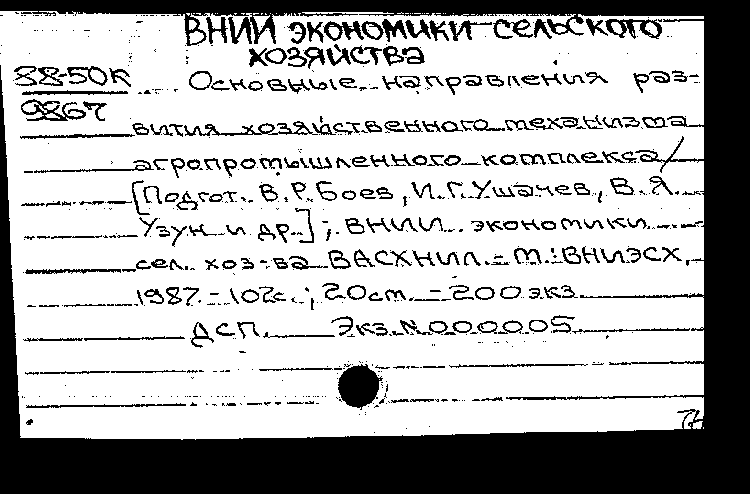 ВНИИ экономики сельского
хозяйства
88-50К Основные направления раз-
9867
вития хозяйственного механизма
агропромышленного комплекса/
[Подгот. В.Р.Боев, И.Г.Ушачев, В.Я.
Узун и др.]; ВНИИ экономики
сел. хоз-ва ВАСХНИЛ. - М.: ВНИЭСХ,
1987. - 102с.; 20см. - 200 экз.
ДСП. Экз.N.000005
ТН